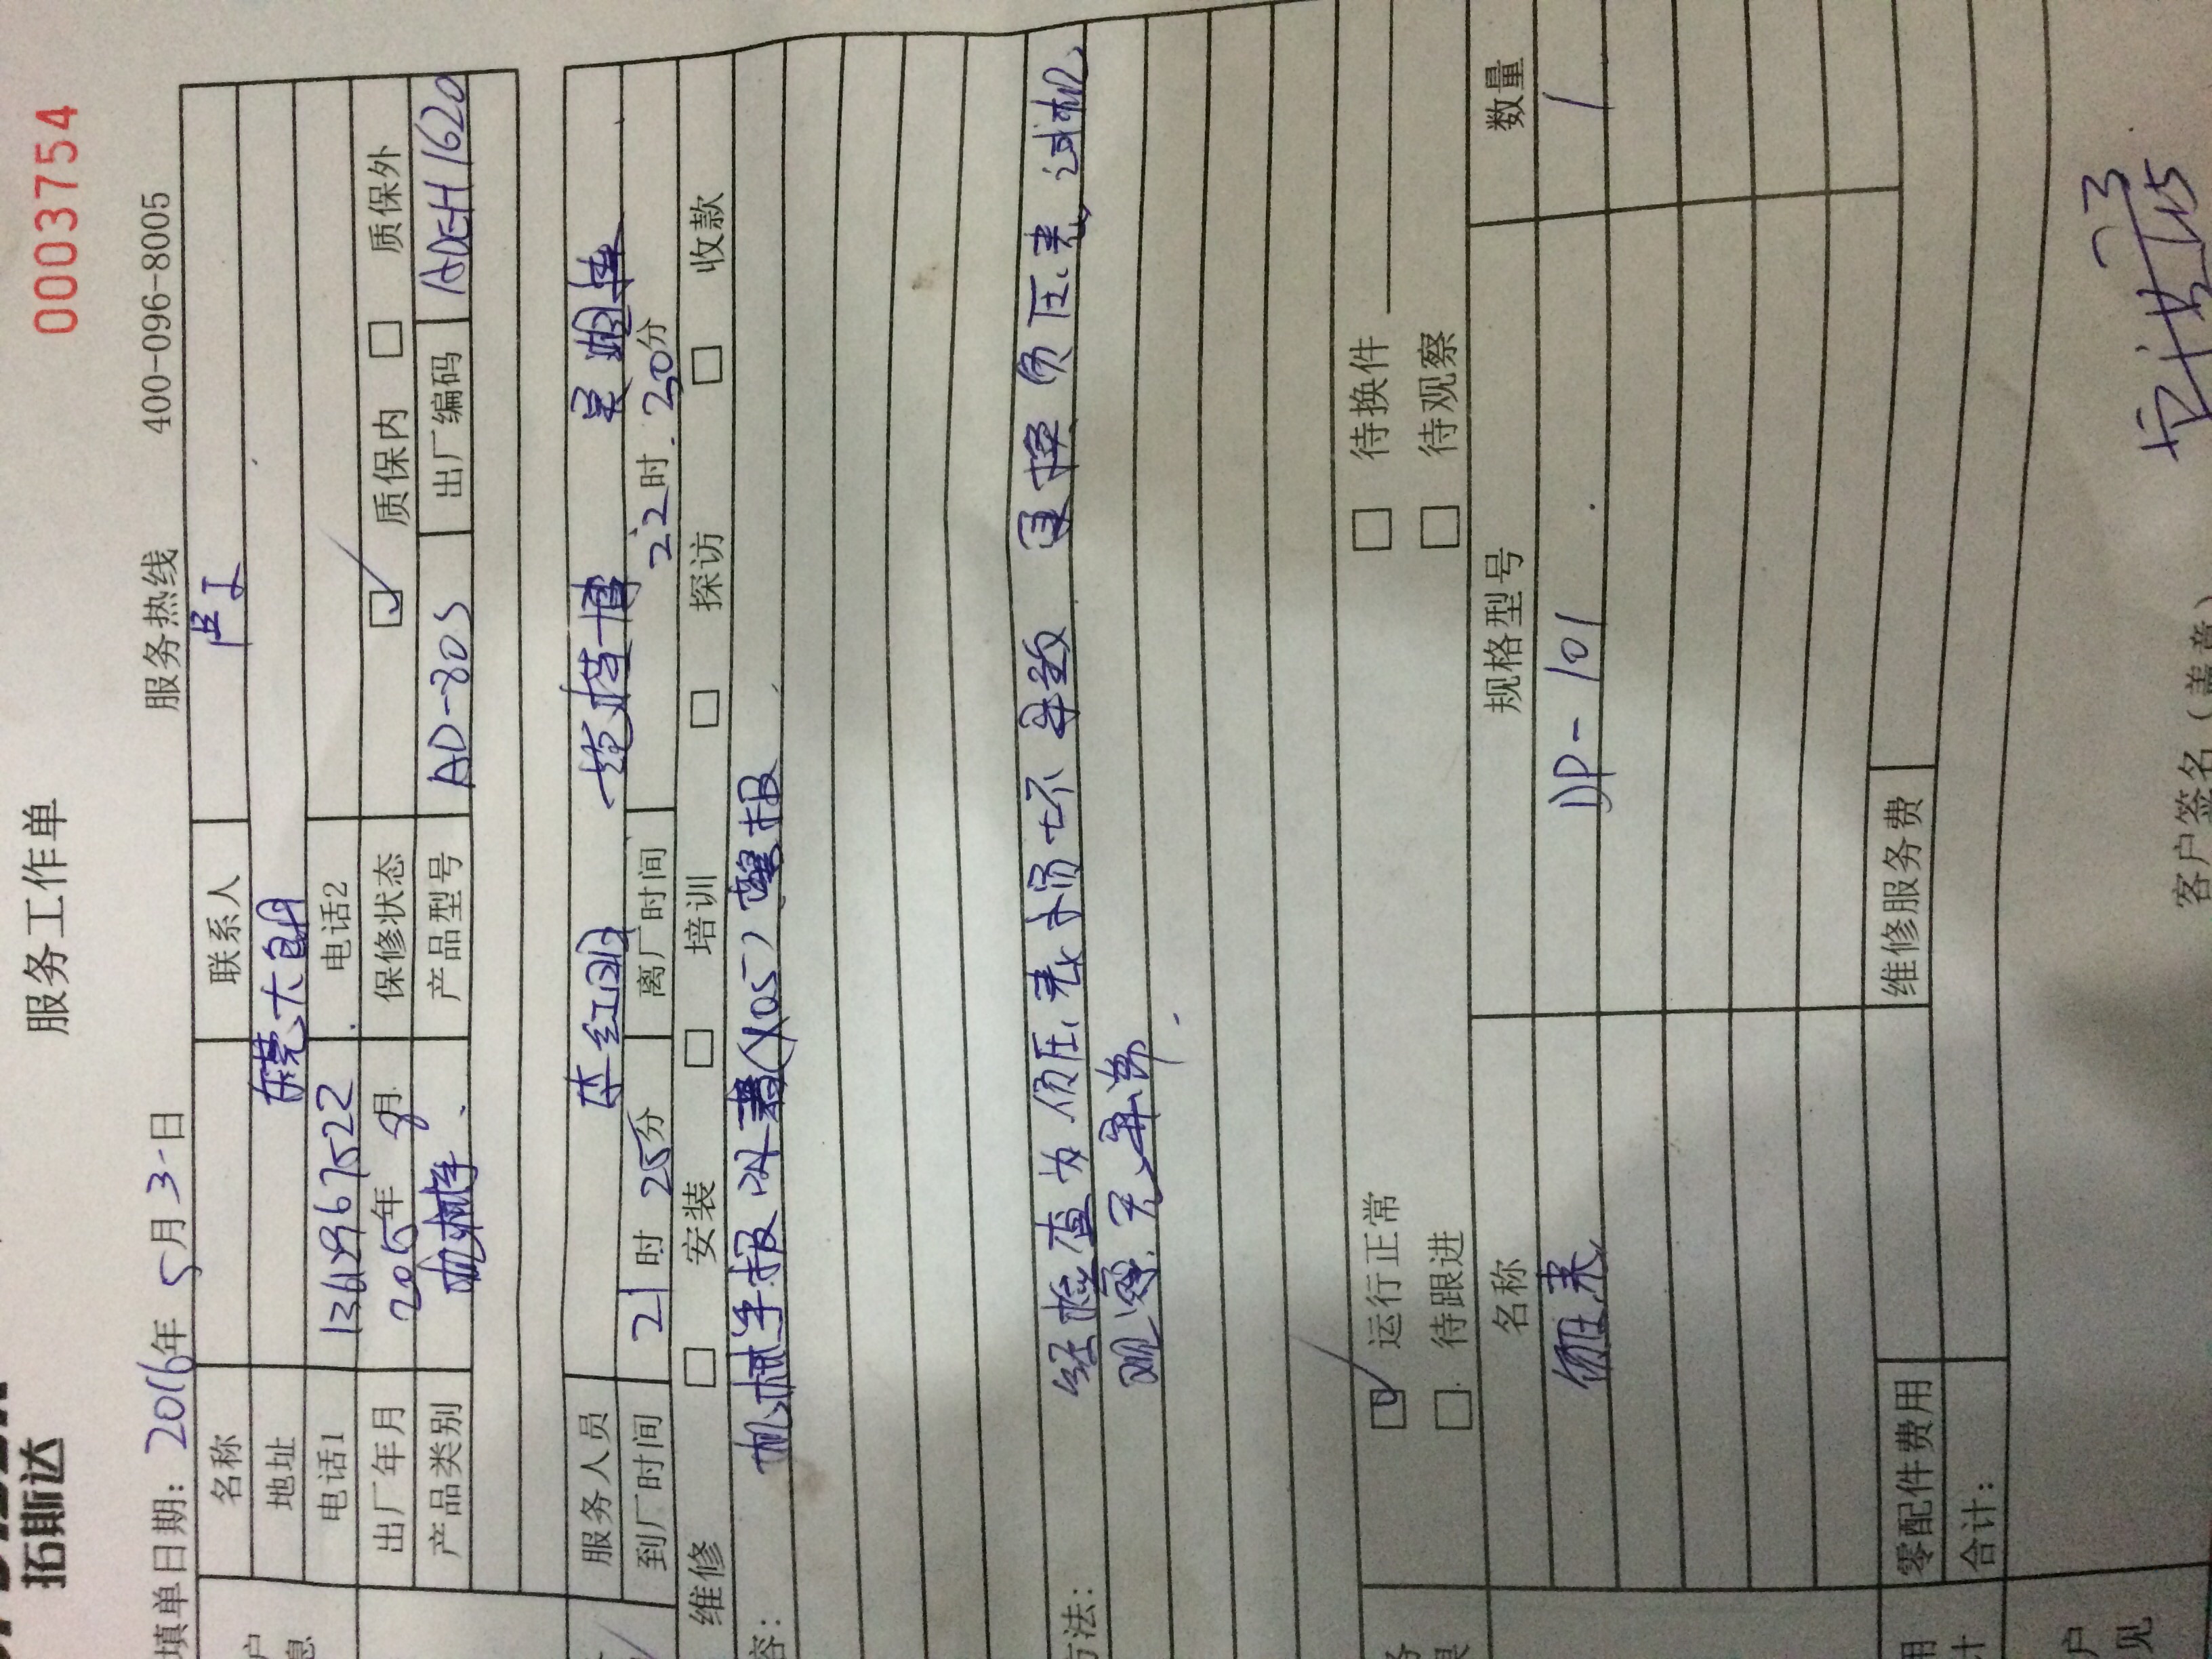 拓斯达
服务工作单
0003754
填单日期：2016年5月3日 服务热线 400-096-8005
名称 联系人 卢工
地址 东莞大朗
电话1 电话2
出厂年月 2015年 月 保修状态 质保内 质保外
产品类别 机械手 产品型号 AD-80S 出厂编码 ADEH1620
服务人员 李红团 范梓博 吴
到厂时间 21时25分 离厂时间 22时30分
维修 安装 培训 探访 收款
容：
机械手报 (X05) 警报
方法：
经检查为负压表损坏导致 更换负压表，试机
观察无异常
运行正常 待换件
待跟进 待观察
名称 规格型号 数量
负压表 DP-101 1
零配件费用 维修服务费
合计：
户
见
客户签名（盖章）